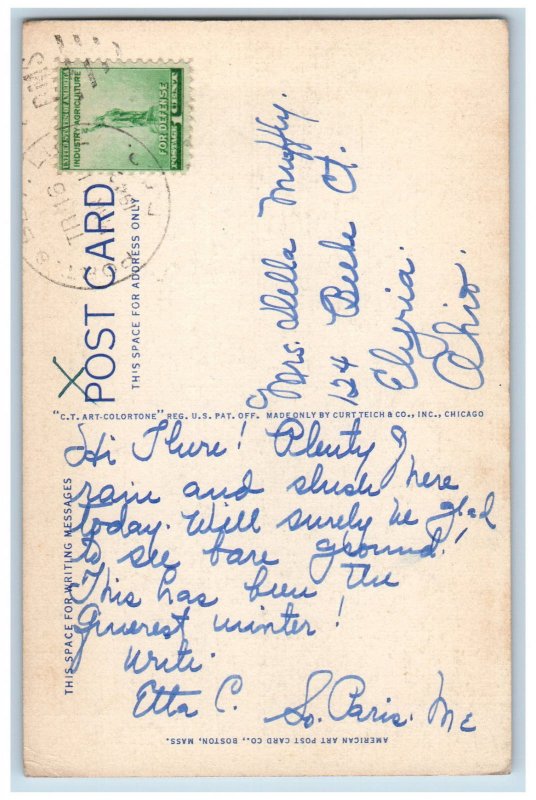 UNITED STATES OF AMERICA
INDUSTRY AGRICULTURE
FOR DEFENSE
POSTAGE 1 CENT
POST CARD
THIS SPACE FOR ADDRESS ONLY
Mrs. Della Muffly.
124 Beebe Ct.
Elyria.
Ohio.
"C.T. ART-COLORTONE" REG. U.S. PAT. OFF. MADE ONLY BY CURT TEICH & CO., INC., CHICAGO
THIS SPACE FOR WRITING MESSAGES
Hi There! Plenty of
rain and slush here
today. Will surely be glad
to see bare ground!
This has been the
querest winter!
Write.
Etta C. So. Paris. Me
AMERICAN ART POST CARD CO., BOSTON, MASS.